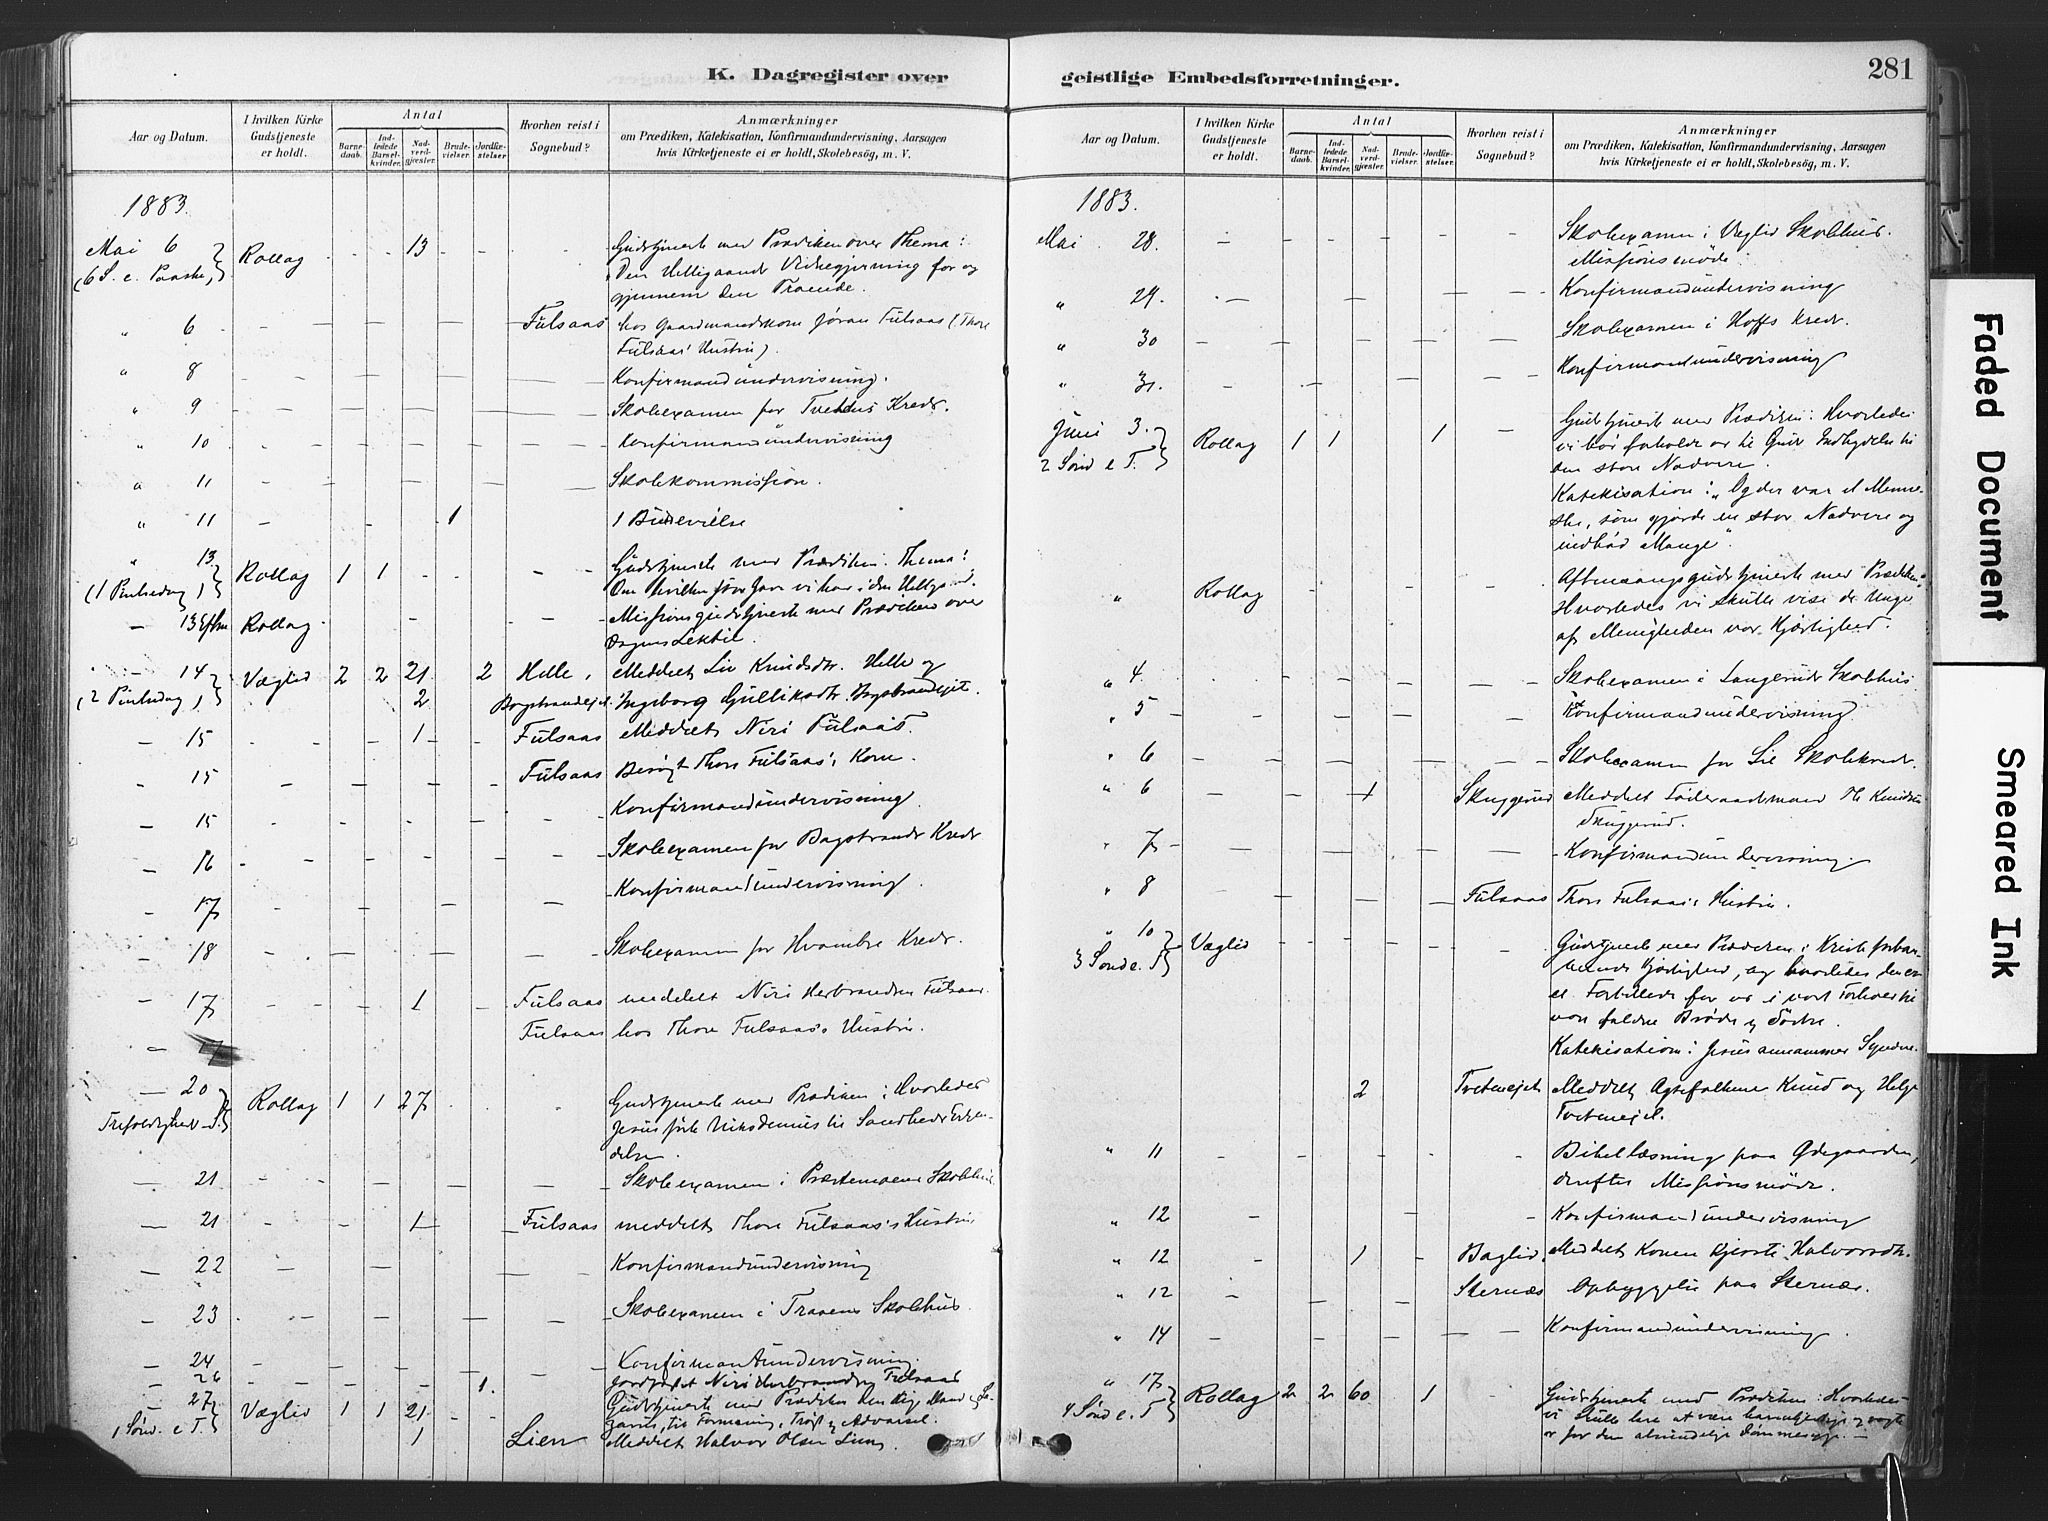 K. Dagregister over
Aar og Datum.
I hvilken Kirke Gudstjeneste er holdt.
Antal
Barnedaab.
Indledede Barselkvinder.
Nadverdgjæster.
Brudevielser.
Jordfæstelser.
Hvorhen reist i Sognebud?
Anmærkninger
om Prædiken, Katekisation, Konfirmandundervisning, Aarsagen
hvis Kirketjeneste ei er holdt, Skolebesög, m. V.
1883.
Mai 6 Rollag 13 Gudstjeneste med Prædiken over Thema:
(6 S. e. Paaske) Den Helligaands Virkegjerning for og
gjennem den Troende.
" 6 Fulsaas hos Gaardmandskone Jøran Fulsaas (Thore
Fulsaas' Hustru).
" 8 Konfirmandundervisning.
" 9 Skoleexamen for Kreds.
" 10 Konfirmandundervisning
" 11 Skolekommission.
" 11 1 1 Brudevielse
" 13 Rollag 1 1 Gudstjeneste med Prædiken. Thema:
(1 Pintsedag) Om hvilken stor Gave vi har i den Helligaand.
— 13 Eftm Rollag Missionsgudstjeneste med Prædiken over
Dagens Lektie.
— 14 Væglid 2 2 21 2 Helle, Meddelt Liv Knudsdtr. Helle og
(2 Pintsedag) 2 Bagstrandejet. Ingeborg Gulliksdtr. Bagstrandejet.
— 15 1 Fulsaas Meddelt Niri Fulsaas.
15 Fulsaas Besøgt Thore Fulsaas's Kone.
— 15 Konfirmandundervisning
— 16 Skoleexamen for Bagstrands Kreds
— 17 Konfirmandundervisning.
— 18 Skoleexamen for Kreds.
— 17 1 Fulsaas meddelt Niri Herbrandsen Fulsaas.
Fulsaas hos Thore Fulsaas's Hustru.
— 20 Rollag 1 1 27 Gudstjeneste med Prædiken: Hvorledes
Trefoldigheds S. Jesus førte Nikodemus til Sandheds Erkjendelse.
— 21 Skoleexamen i Præstemoens Skolehus
— 21 1 Fulsaas meddelt Thore Fulsaas's Hustru
— 22 Konfirmandundervisning
— 23 Skoleexamen i Traaens Skolehus.
— 24 Konfirmandundervisning.
— 26 1. Jordfæstet Niri Herbrandsen Fulsaas
— 27 Væglid 1 1 21 Gudstjeneste med Prædiken den rige Mand og Lazarus,
1 Sönd. e T. til Formaning, Trøst og Advarsel.
1 Lien Meddelt Halvor Olsen Lien.
geistlige Embedsforretninger.
281
Aar og Datum.
I hvilken Kirke Gudstjeneste er holdt.
Antal
Barnedaab.
Indledede Barselkvinder.
Nadverdgjæster.
Brudevielser.
Jordfæstelser.
Hvorhen reist i Sognebud?
Anmærkninger
om Prædiken, Katekisation, Konfirmandundervisning, Aarsagen
hvis Kirketjeneste ei er holdt, Skolebesög, m. V.
1883.
Mai 28. Skoleexamen i Væglid Skolehus.
Missionsmøde
" 29. Konfirmandundervisning
" 30 Skoleexamen i Hoffs Kreds.
" 31. Konfirmandundervisning
Juni 3. Rollag 1 1 1 Gudstjeneste med Prædiken: Hvorledes
2 Sönd e T. vi bør forholde os til Guds Indbydelse til
den store Nadvere.
Katekisation: "Og der var et Menneske,
som gjorde en stor Nadvere og
indbød Mange".
" Rollag Aftensangsgudstjeneste med Prædiken:
Hvorledes vi skulle vise de Unge
af Menigheden vor Kjærlighed.
" 4. Skoleexamen i Langeruds Skolehus.
" 5 Konfirmandundervisning
" 6 Skoleexamen for Lie Skolekreds.
" 6 1 Skuggerud Meddelt Föderaadsmand Knudsen
Skuggerud.
" 7 Konfirmandundervisning.
" 8 Fulsaas Thore Fulsaas's Hustru.
" 10 Væglid Gudstjeneste med Prædiken: Kristi forbarmende
3 Sönd e. T Kjærlighed, og hvorledes den er
et Forbillede for os i vort Forhold til
vore faldne Brødre og Søstre.
Katekisation: Jesus annammer Syndere.
2 Tvetenejet Meddelt Ægtefolkene Knud og Helge
Tvetenejet.
" 11 Bibellæsning paa Ødegaarden,
derefter Missionsmöde.
" 12 Konfirmandundervisning
" 12 1 Baglid. Meddelt Konen Kjersti Halvorsdtr.
" 12 Sternæs Opbyggelse paa Sternæs.
" 14 Konfirmandundervisning.
" 17 Rollag 2 2 60 1 Gudstjeneste med Prædiken: Hvorledes
4 Sönd e. T vi skulle lære at være barmhjertige og vogte
os for den almindelige Dømmesyge.
Faded Document
Smeared Ink